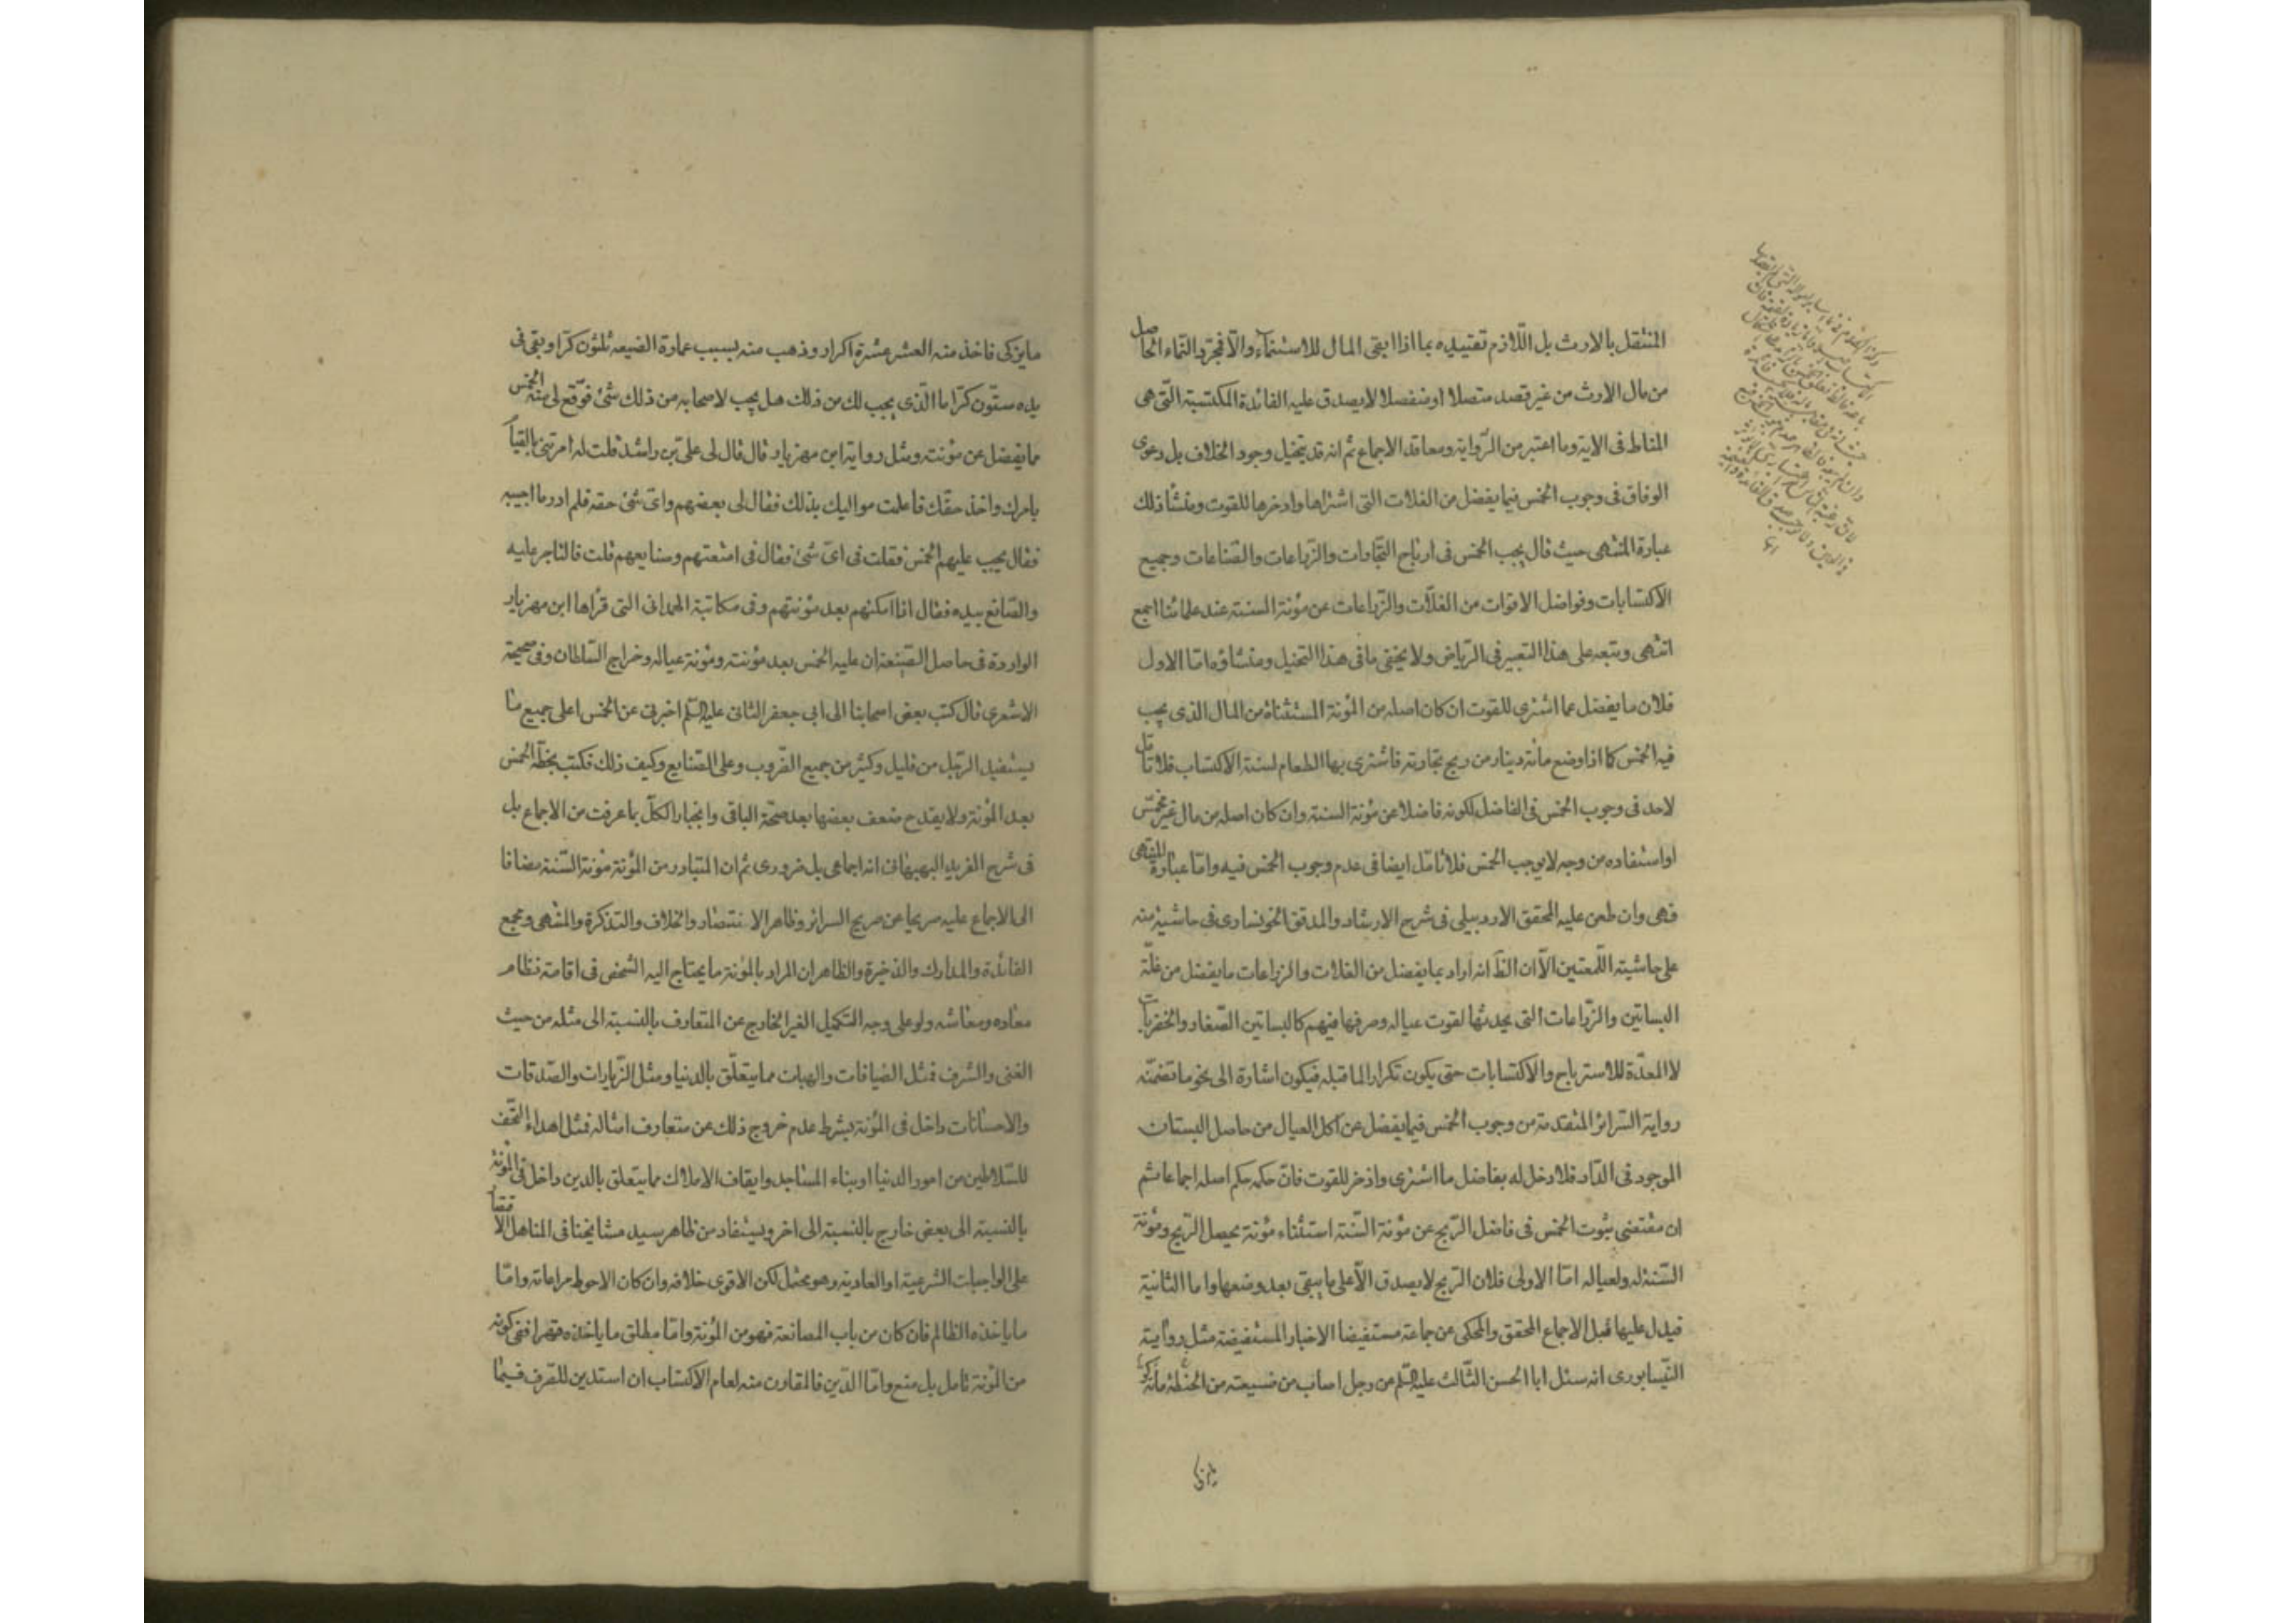 المنتقل بالارث بل اللازم تقييده بما اذا ابقى المال للاستنماء والا فمجرد النماء الحاصل
من مال الارث من غير قصد متصلا او منفصلا لا يصدق عليه الفائدة المكتسبة التى هى
المناط فى الاية وما اعتبر من الرواية ومعاقد الاجماع ثم انه قد يتخيل وجود الخلاف بل دعوى
الوفاق فى وجوب الخمس فيما يفضل من الغلات التى اشتراها وادخرها للقوت ومنشأ ذلك
عبارة المنتهى حيث قال يجب الخمس فى ارباح التجارات والزراعات والصناعات وجميع
الاكتسابات وفواضل الاقوات من الغلات والزراعات عن مؤنة السنة عند علمائنا اجمع
انتهى وتبعه على هذا التعبير فى الرياض ولا يخفى ما فى هذا التخيل ومنشاؤه اما الاول
فلان ما يفضل عما اشترى للقوت ان كان اصله من المؤنة المستثناة من المال الذى يجب
فيه الخمس كما اذا وضع مائة دينار من ربح تجارته فاشترى بها الطعام لسنة الاكتساب فلا تامل
لاحد فى وجوب الخمس فى الفاضل لكونه فاضلا عن مؤنة السنة وان كان اصله من مال غير مخمس
او استفاده من وجه لا يوجب الخمس فلا تامل ايضا فى عدم وجوب الخمس فيه واما عبارة المنتهى
فهى وان طعن عليه المحقق الاردبيلى فى شرح الارشاد والمدقق الخونسارى فى حاشية منه
على حاشيته اللمعتين الا ان الظ انه اراد بما يفضل من الغلات والزراعات ما يفضل من غلة
البساتين والزراعات التى يحدثها لقوت عياله وصرفها فيهم كالبساتين الصغار والخضريات
لا المعدة للاسترباح والاكتسابات حتى يكون تكرارا لما قبله فيكون اشارة الى نحو ما تضمنه
رواية السرائر المتقدمة من وجوب الخمس فيما يفضل عن اكل العيال من حاصل البستان
الموجود فى الدار فلا دخل له بفاضل ما اشترى واذخر للقوت فان حكمه حكم اصله اجماعا ثم
ان مقتضى ثبوت الخمس فى فاضل الربح عن مؤنة السنة استثناء مؤنة تحصيل الربح ومؤنة
السنة له ولعياله اما الاولى فلان الربح لا يصدق الا على ما يبقى بعد وضعها واما الثانية
فيدل عليها قبل الاجماع المحقق والمحكى عن جماعة مستفيضا الاخبار المستفيضة مثل رواية
النيسابورى انه سئل ابا الحسن الثالث عليه السلم عن رجل اصاب من ضيعته من الحنطة مائة كر
ما يزكى فاخذ منه العشر عشرة اكرار وذهب منه بسبب عمارة الضيعه ثلثون كرا وبقى فى
يده ستون كرا ما الذى يجب لك من ذلك هل يجب لاصحابه من ذلك شئ فوقع لى منه الخمس
مما يفضل عن مؤنته ومثل رواية ابن مهزيار قال قال لى على بن راشد قلت له امرتنى بالقيام
بامرك واخذ حقك فاعلمت مواليك بذلك فقال لى بعضهم واى شئ حقه فلم ادر ما اجيبه
فقال يجب عليهم الخمس فقلت فى اى شئ فقال فى امتعتهم وصنايعهم قلت فالتاجر عليه
والصانع بيده فقال اذا امكنهم بعد مؤنتهم وفى مكاتبة الهمدانى التى قرأها ابن مهزيار
الواردة فى حاصل الضيعة ان عليه الخمس بعد مؤنته ومؤنة عياله وخراج السلطان وفى صحيحة
الاشعرى قال كتب بعض اصحابنا الى ابى جعفر الثانى عليه السلم اخبرنى عن الخمس اعلى جميع ما
يستفيد الرجل من قليل وكثير من جميع الضروب وعلى الصنايع وكيف ذلك فكتب بخطه الخمس
بعد المؤنة ولا يقدح ضعف بعضها بعد صحة الباقى وانجبار الكل بما عرفت من الاجماع بل
فى شرح الفريد البهبهانى انه اجماعى بل ضرورى ثم ان المتبادر من المؤنة مؤنة السنة مضافا
الى الاجماع عليه صريحا عن صريح السرائر وظاهر الانتصار والخلاف والتذكرة والمنتهى ومجمع
الفائدة والمدارك والذخيرة والظاهر ان المراد بالمؤنة ما يحتاج اليه الشخص فى اقامة نظام
معاده ومعاشه ولو على وجه التكميل الغير الخارج عن المتعارف بالنسبة الى مثله من حيث
الغنى والشرف فمثل الضيافات والهبات مما يتعلق بالدنيا ومثل الزيارات والصدقات
والاحسانات داخل فى المؤنة بشرط عدم خروج ذلك عن متعارف امثاله فمثل اهداء التحف
للسلاطين من امور الدنيا او بناء المساجد وايقاف الاملاك مما يتعلق بالدين داخل فى المؤنة
بالنسبة الى بعض خارج بالنسبة الى اخر ويستفاد من ظاهر سيد مشايخنا فى المناهل الاقتصار
على الواجبات الشرعية او العادية وهو محتمل لكن الاقوى خلافه وان كان الاحوط مراعاته واما
ما ياخذه الظالم فان كان من باب المصانعة فهو من المؤنة واما مطلق ما ياخذه قهرا ففى كونه
من المؤنة تامل بل منع واما الدين فالمقارن منه لعام الاكتساب ان استدين للصرف فيما